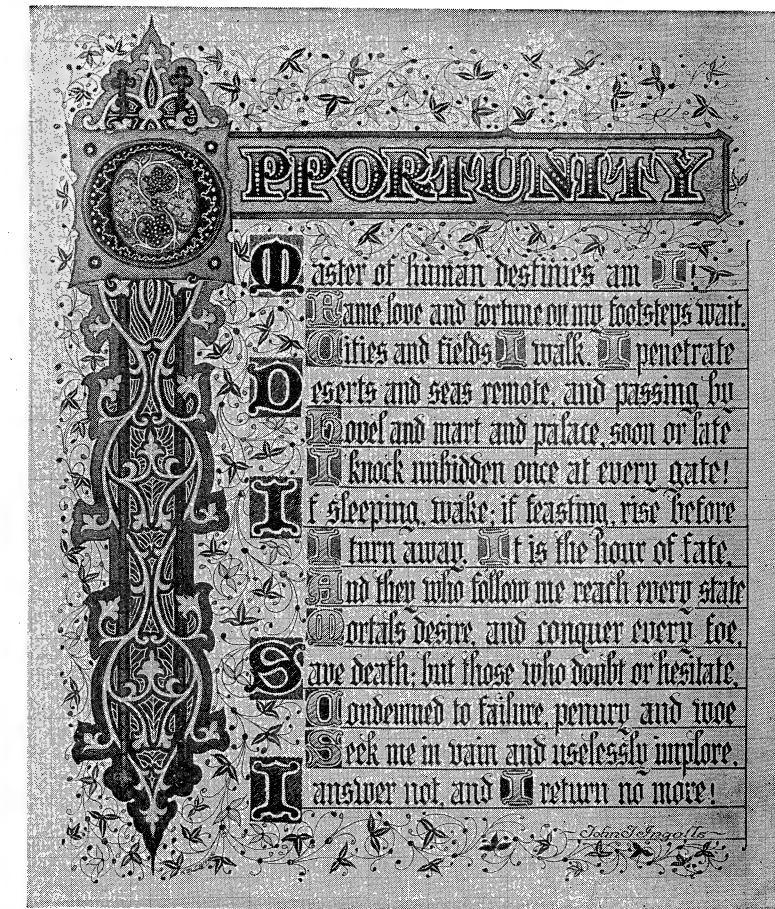 OPPORTUNITY
Master of human destinies am I!
Fame, love and fortune on my footsteps wait.
Cities and fields I walk. I penetrate
Deserts and seas remote, and passing by
Hovel and mart and palace, soon or late
I knock unbidden once at every gate!
If sleeping, wake; if feasting, rise before
I turn away. It is the hour of fate,
And they who follow me reach every state
Mortals desire, and conquer every foe,
Save death; but those who doubt or hesitate,
Condemned to failure, penury and woe
Seek me in vain and uselessly implore.
I answer not, and I return no more!
~ John J Ingalls ~